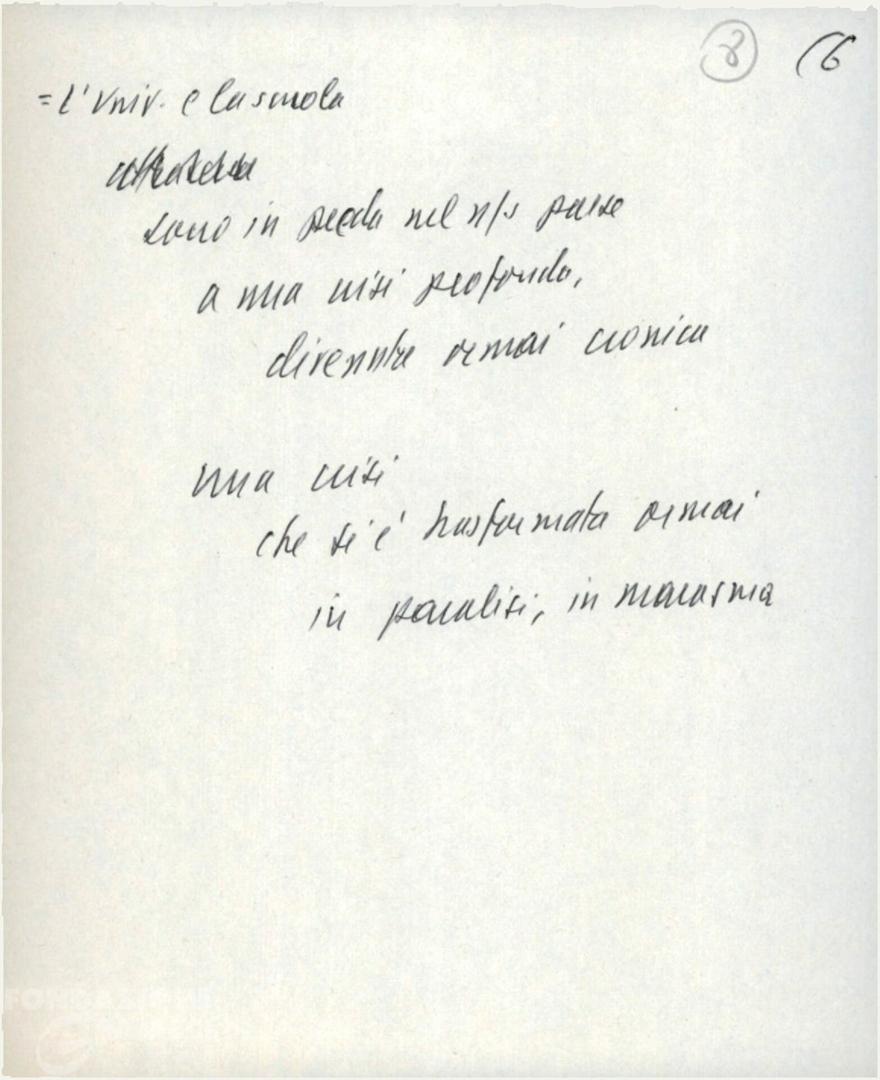 8 (6
= L'Univ. e la scuola
sono in preda nel n/s paese
a una crisi profonda,
divenuta ormai cronica
una crisi
che si è trasformata ormai
in paralisi, in marasma
FONDAZIONE